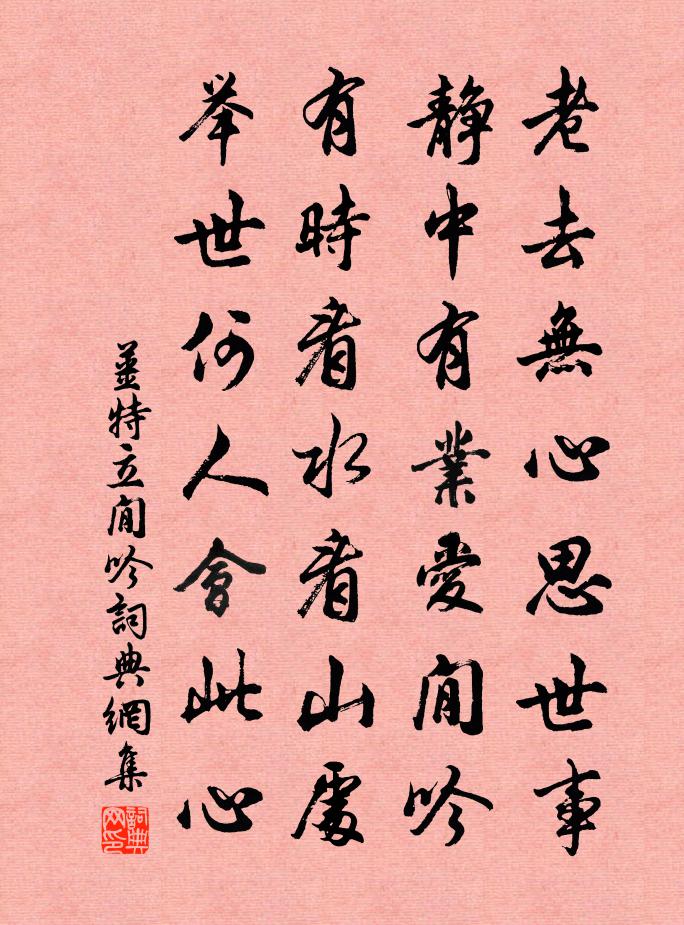 老去無心思世事
静中有業愛閒吟
有時看水看山處
举世何人會此心
姜特立閒吟詞典網集
詞典网印